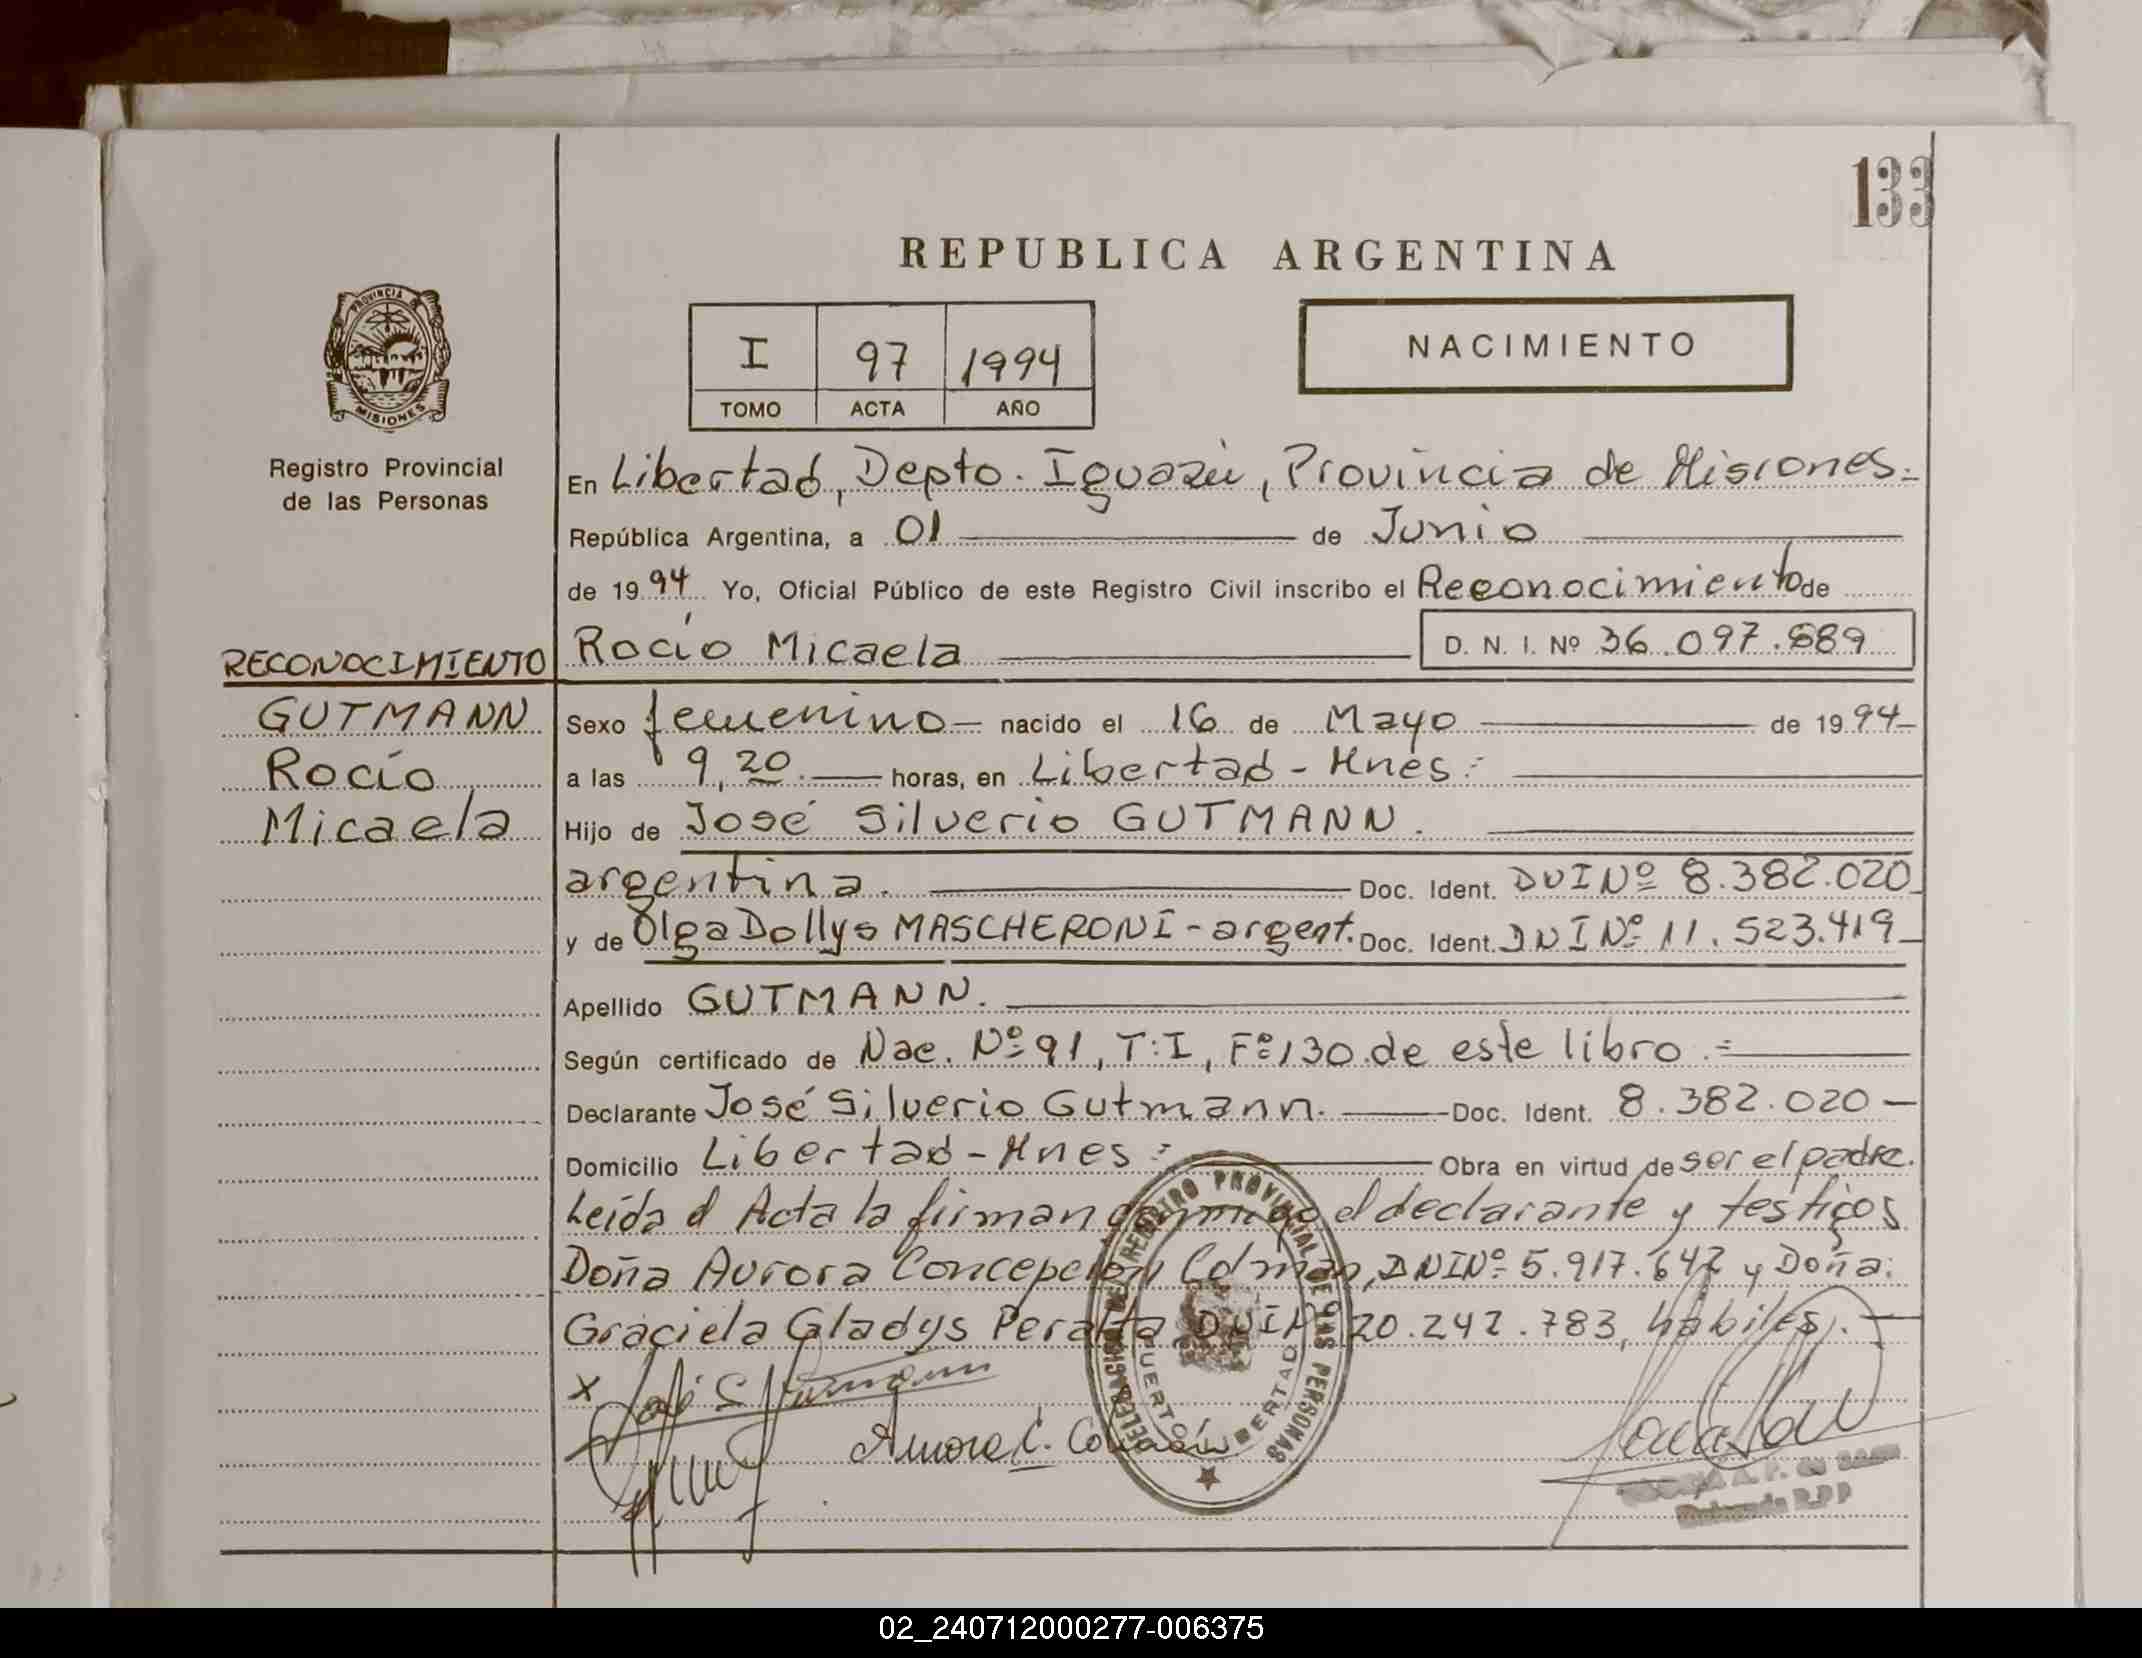 133
REPUBLICA ARGENTINA
PROVINCIA DE
MISIONES
I 97 1994
TOMO ACTA AÑO
NACIMIENTO
Registro Provincial
de las Personas
En Libertad, Depto. Iguazú, Provincia de Misiones.-
República Argentina, a 01 de Junio
de 1994 Yo, Oficial Público de este Registro Civil inscribo el Reconocimiento de
Rocío Micaela D. N. I. Nº 36.097.889
RECONOCIMIENTO
GUTMANN
Rocío
Micaela
Sexo femenino nacido el 16 de Mayo de 1994
a las 9,20 horas, en Libertad - Mnes.-
Hijo de José Silverio GUTMANN.
argentina. Doc. Ident. DNI Nº 8.382.020
y de Olga Dollys MASCHERONI - argent. Doc. Ident. DNI Nº 11.523.419
Apellido GUTMANN.
Según certificado de Nac. Nº 91, T:I, Fº 130 de este libro.-
Declarante José Silverio Gutmann. Doc. Ident. 8.382.020
Domicilio Libertad - Mnes.- Obra en virtud de ser el padre.
Leída el Acta la firman conmigo el declarante y testigos
Doña Aurora Concepción Colmán, DNI Nº 5.917.642 y Doña
Graciela Gladys Peralta DNI Nº 20.242.783, hábiles.
x José S Gutmann
Aurora C. Colmán
REGISTRO PROVINCIAL DE LAS PERSONAS
PUERTO LIBERTAD
02_240712000277-006375